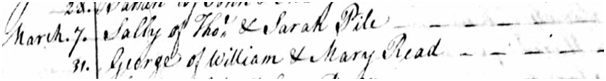 March. 7. Sally of Thos. & Sarah Pile
31. George of William & Mary Read